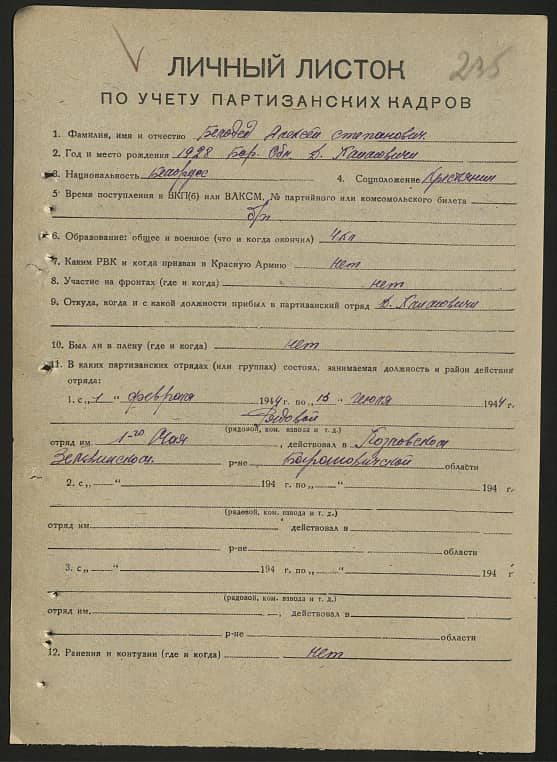 235
ЛИЧНЫЙ ЛИСТОК
ПО УЧЕТУ ПАРТИЗАНСКИХ КАДРОВ
1. Фамилия, имя и отчество Белобед Алексей Степанович
2. Год и место рождения 1928 Бар. Обл. д.
3. Национальность Белорус 4. Соцположение Крестьянин
5. Время поступления в ВКП(б) или ВЛКСМ, № партийного или комсомольского билета
б/п
6. Образование: общее и военное (что и когда окончил) 4 кл
7. Каким РВК и когда призван в Красную Армию нет
8. Участие на фронтах (где и когда) нет
9. Откуда, когда и с какой должности прибыл в партизанский отряд д.
10. Был ли в плену (где и когда) нет
11. В каких партизанских отрядах (или группах) состоял, занимаемая должность и район действия
отряда:
1. с „1“ февраля 1944 г. по „13“ июля 1944 г.
Рядовой
(рядовой, ком. взвода и т. д.)
отряд им. 1-го Мая, действовал в
р-не Барановичской области
2. с „ “ 194 г. по „ “ 194 г.
(рядовой, ком. взвода и т. д.)
отряд им. , действовал в
р-не области
3. с „ “ 194 г. по „ “ 194 г
(рядовой, ком. взвода и т. д.)
отряд им. , действовал в
р-не области
12. Ранения и контузии (где и когда) нет